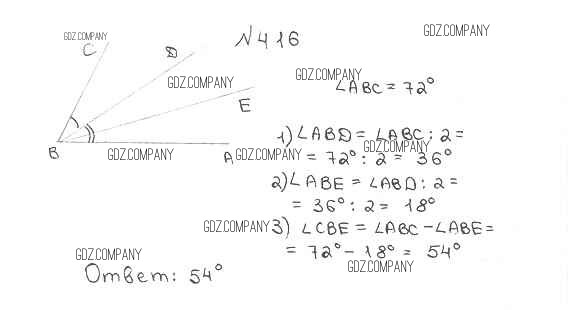 GDZ.COMPANY
GDZ.COMPANY
N416
C
D
GDZ.COMPANY
GDZ.COMPANY
E
∠ABC = 72°
B
GDZ.COMPANY
A
1) ∠ABD = ∠ABC : 2 =
GDZ.COMPANY
GDZ.COMPANY
= 72° : 2 = 36°
2) ∠ABE = ∠ABD : 2 =
= 36° : 2 = 18°
GDZ.COMPANY
3) ∠CBE = ∠ABC - ∠ABE =
= 72° - 18° = 54°
GDZ.COMPANY
GDZ.COMPANY
Ответ: 54°